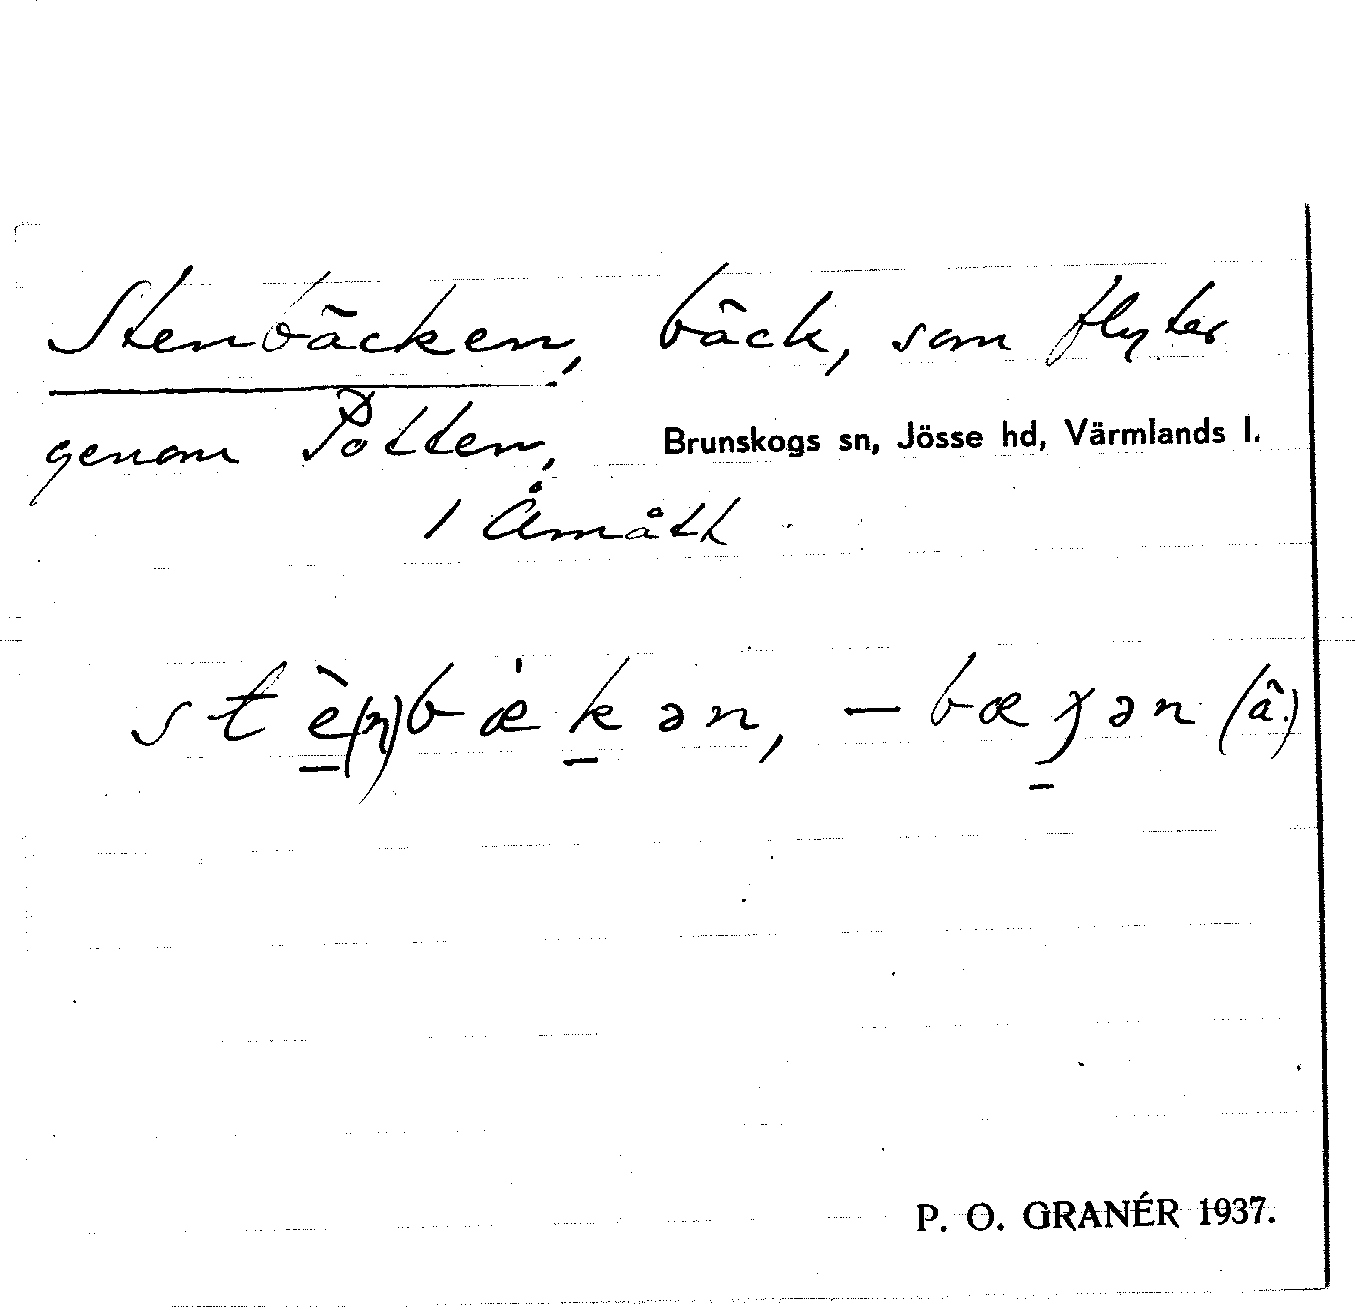 Stenbäcken, bäck, som flyter
genom Potten, Brunskogs sn, Jösse hd, Värmlands l.
1 Åmåtk
stè(n)bækən, – bæɣən (â.)
P. O. GRANÉR 1937.